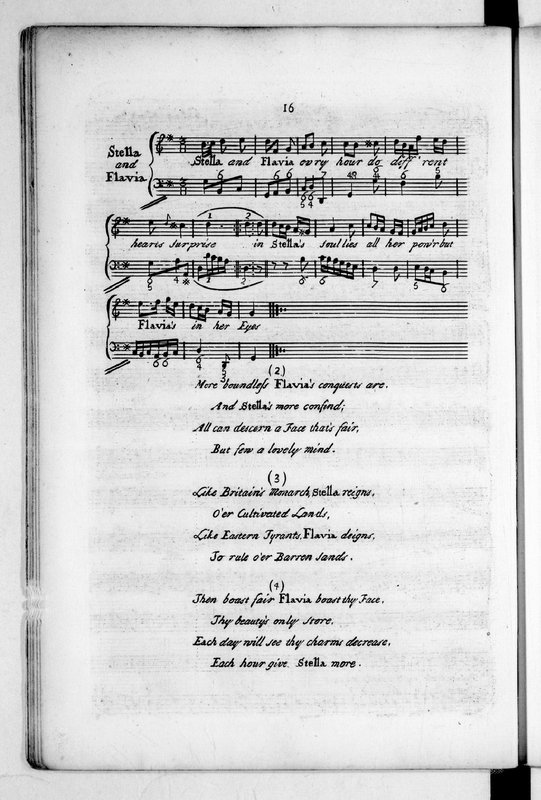 16
Stella
and
Flavia
Stella and Flavia ev'ry hour do diff'rent
hearts surprise in Stella's soul lies all her pow'r but
Flavia's in her Eyes
(2)
More boundless Flavia's conquests are.
And Stella's more confind;
All can descern a Face that's fair,
But few a lovely mind.
(3)
Like Britain's Monarch, Stella reigns,
O'er Cultivated Lands,
Like Eastern Tyrants, Flavia deigns,
To rule o'er Barren Sands.
(4)
Then boast fair Flavia boast thy Face,
Thy beauty's only Store,
Each day will see thy charms decrease,
Each hour give Stella more.